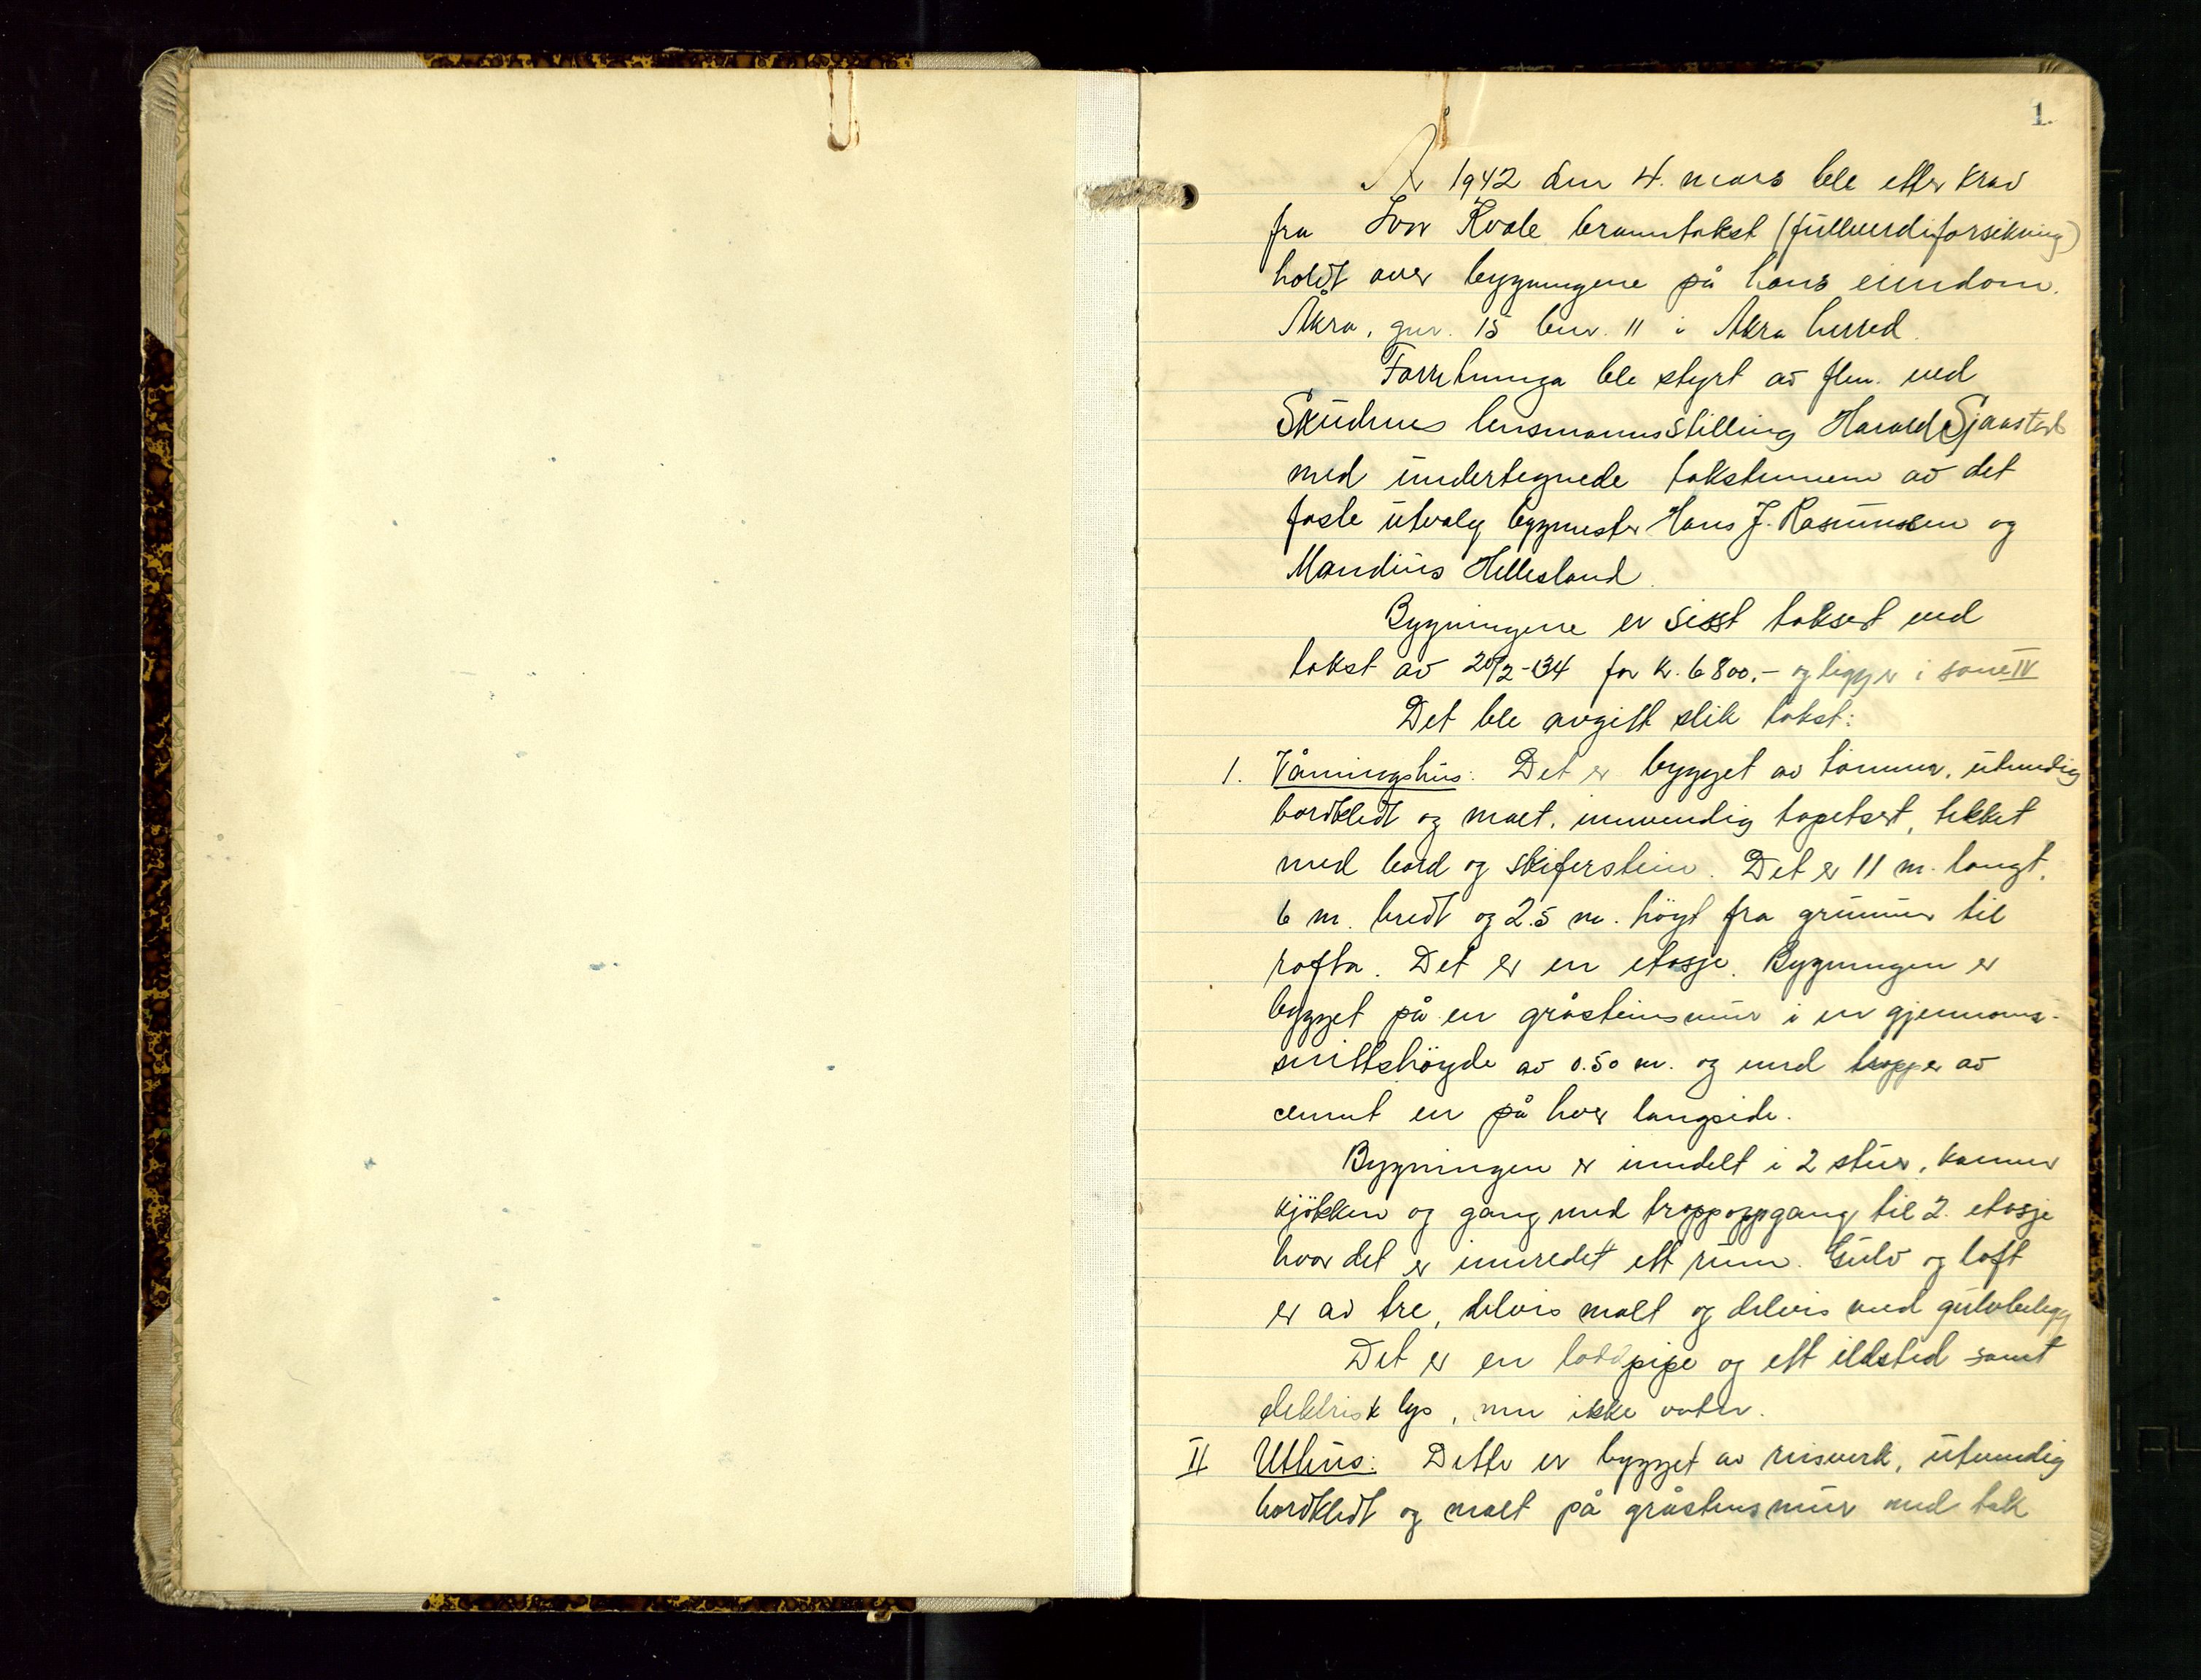 1.
År 1942 den 4. mars ble etter krav
fra Ivar Kvale branntakst (fullverdiforsikring)
holdt over bygningene på hans eiendom.
Åkra, gnr. 15 bnr. 11 i Åkra herred.
Forretninga ble styrt av flm. ved
Skudnes lensmannsstilling Harald Sjaastad
med undertegnede takstmenn av det
faste utvalg byggmester Hans J. Rasmussen og
Mandius Hellesland.
Bygningene er sisst taksert ved
takst av 20/2-34 for kr. 6800.- og ligger i sone IV
Det ble avgitt slik takst:
1. Våningshus: Det er bygget av tömmer, utvendig
bordkledt og malt, innvendig tapetsert, tekket
med bord og skiferstein. Det er 11 m. langt,
6 m. bredt og 2.5 m. höyt fra grunnmur til
rafta. Det er en etasje. Bygningen er
bygget på en gråsteinsmur i en gjennom-
snittshöyde av 0.50 m. og med trapper av
cement en på hver langside.
Bygningen er inndelt i 2 stuer, kammer
kjökken og gang med trappoppgang til 2. etasje
hvor det er innredet ett rum. Gulv og loft
er av tre, delvis malt og delvis med gulvbelegg
Det er en loddpipe og ett ildsted samt
elektrisk lys, men ikke vatn.
II Uthus: Dette er bygget av reisverk, utvendig
bordkledt og malt på gråstensmur med tak